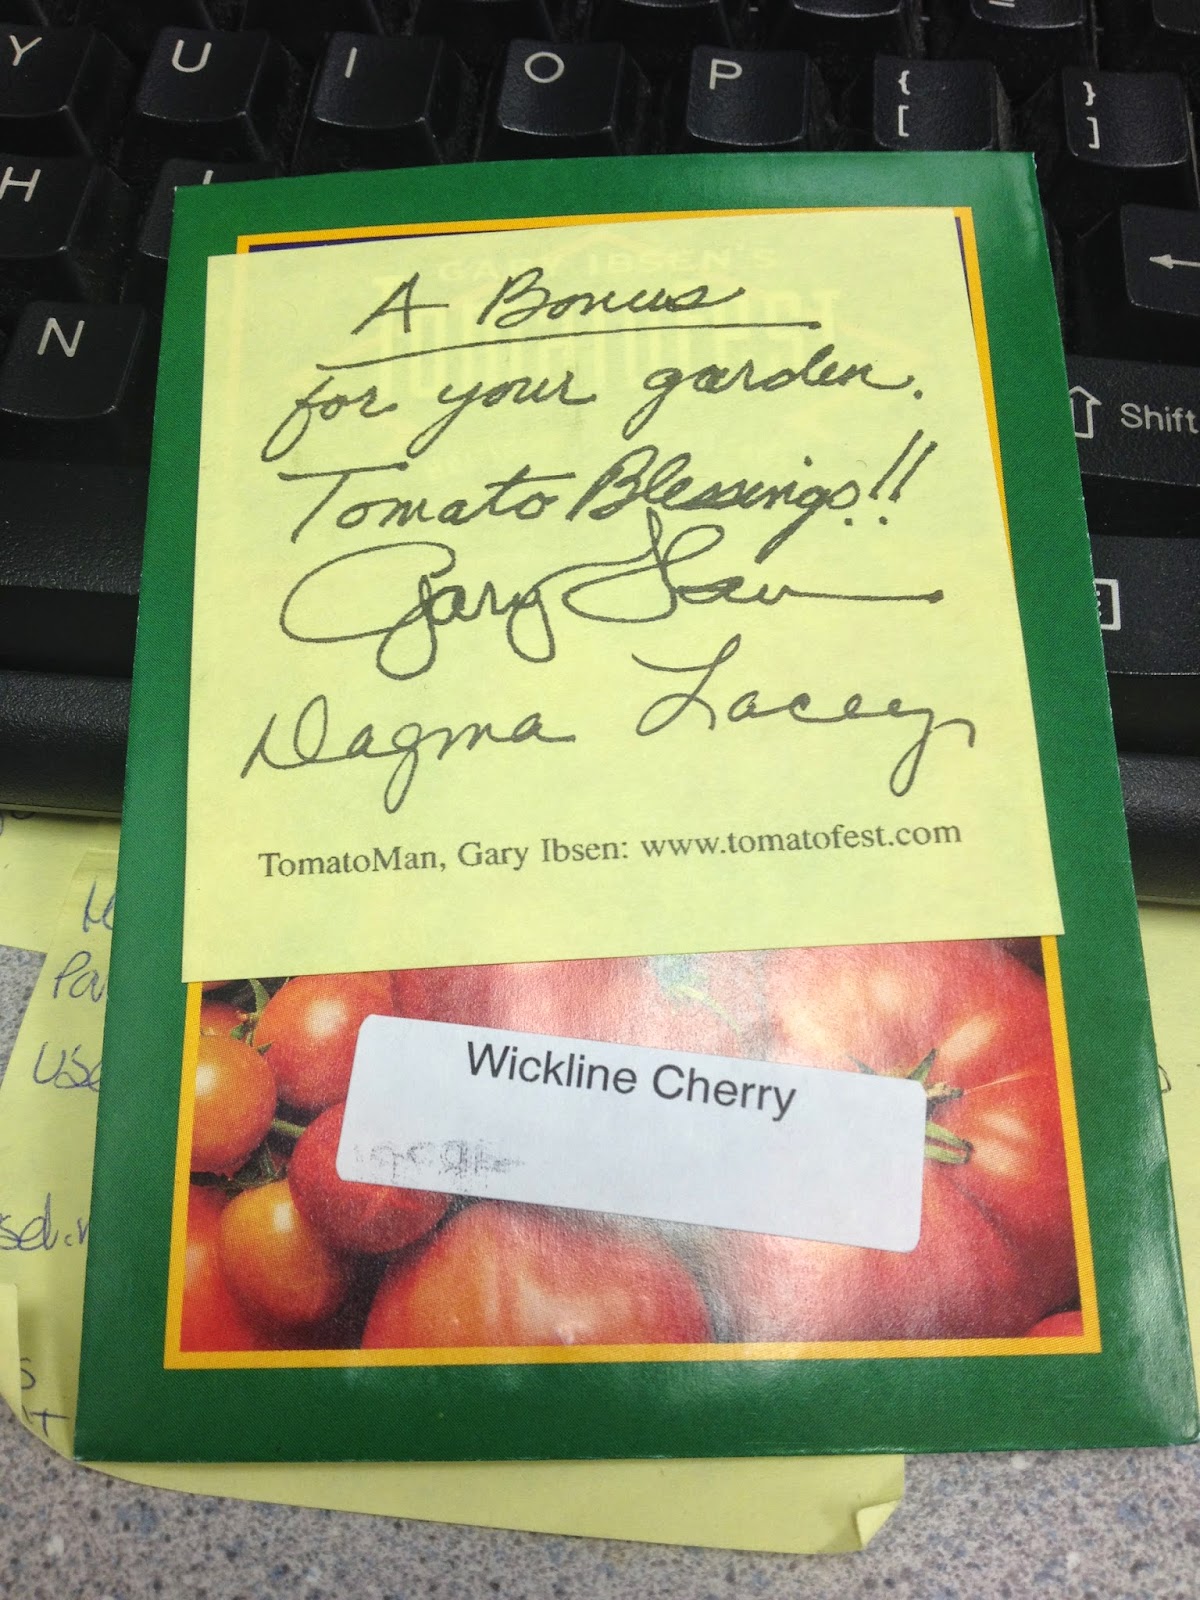 Y U I O P { [ } ]
H
N
Shift
GARY IBSEN'S
TOMATOFEST
A Bonus
for your garden.
Tomato Blessings!!
Gary Ibsen
Dagma Lacey
TomatoMan, Gary Ibsen: www.tomatofest.com
Wickline Cherry